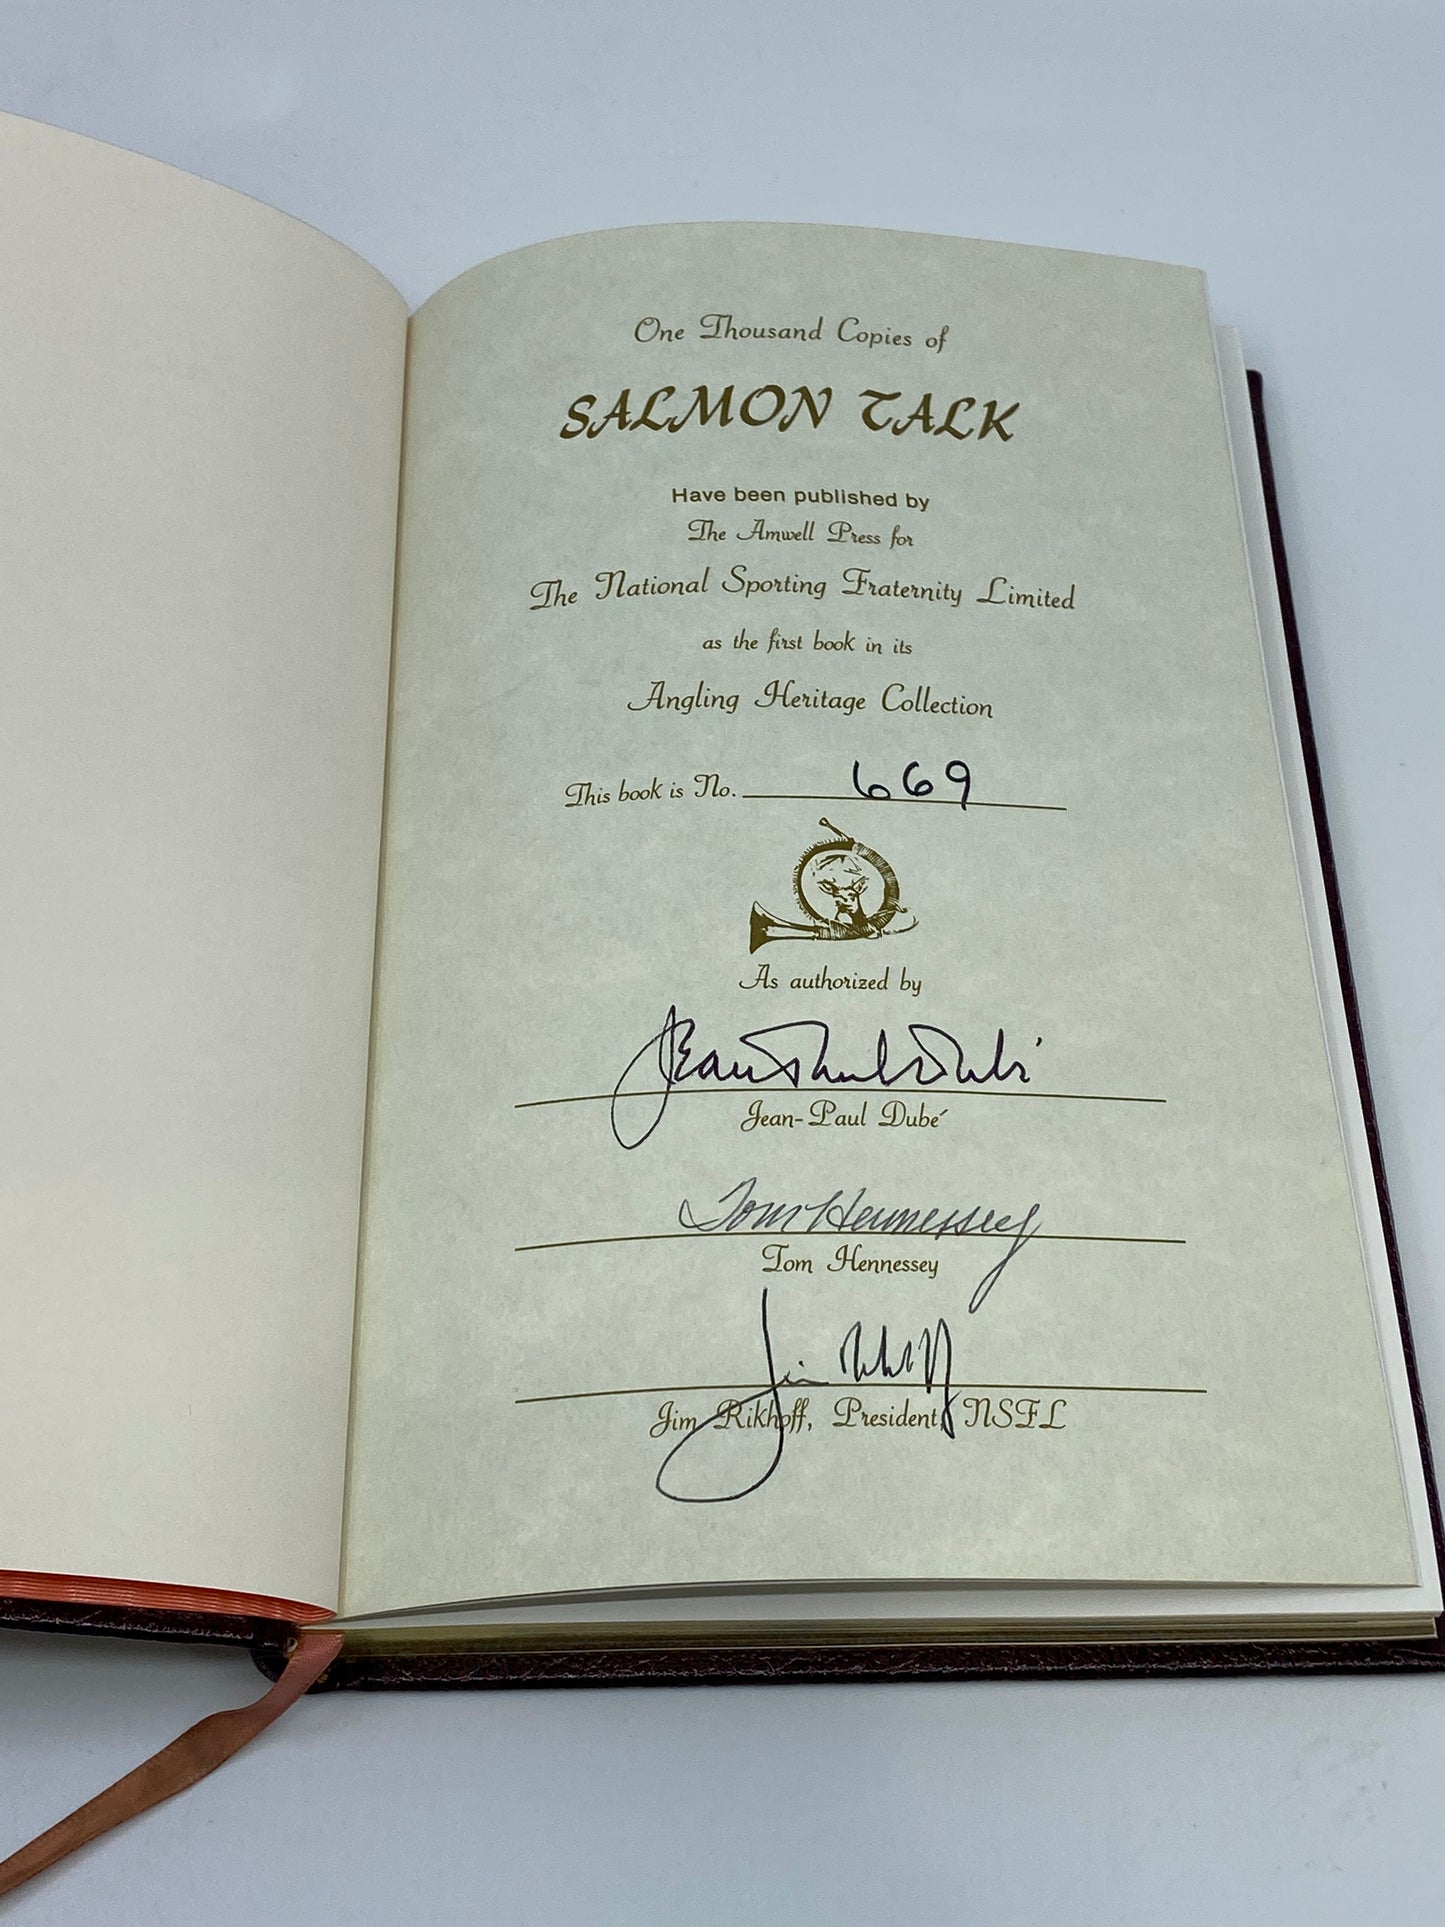 One Thousand Copies of
SALMON TALK
Have been published by
The Amwell Press for
The National Sporting Fraternity Limited
as the first book in its
Angling Heritage Collection
This book is No. 669
As authorized by
Jean Paul Dubé
Jean-Paul Dubé
Tom Hennessey
Tom Hennessey
Jim Rikhoff
Jim Rikhoff, President, NSFL